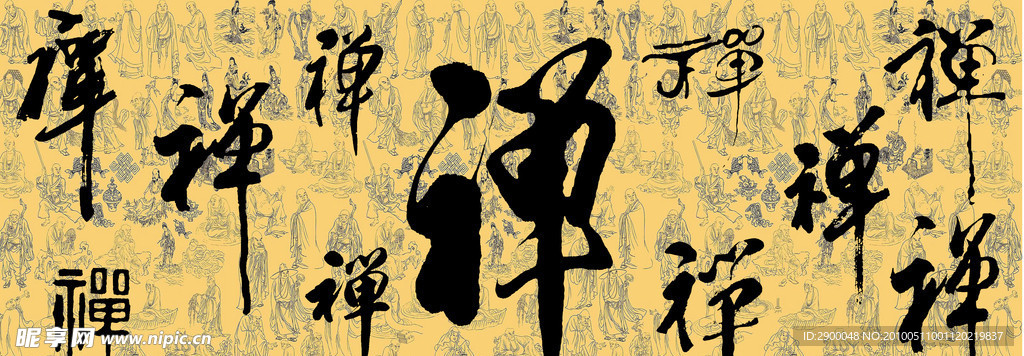 禅
禅
禅
禅
禪
禪
禅
禅
禅
禪
禅
昵享网 www.nipic.cn
ID:2900048 NO:20100511001120219837